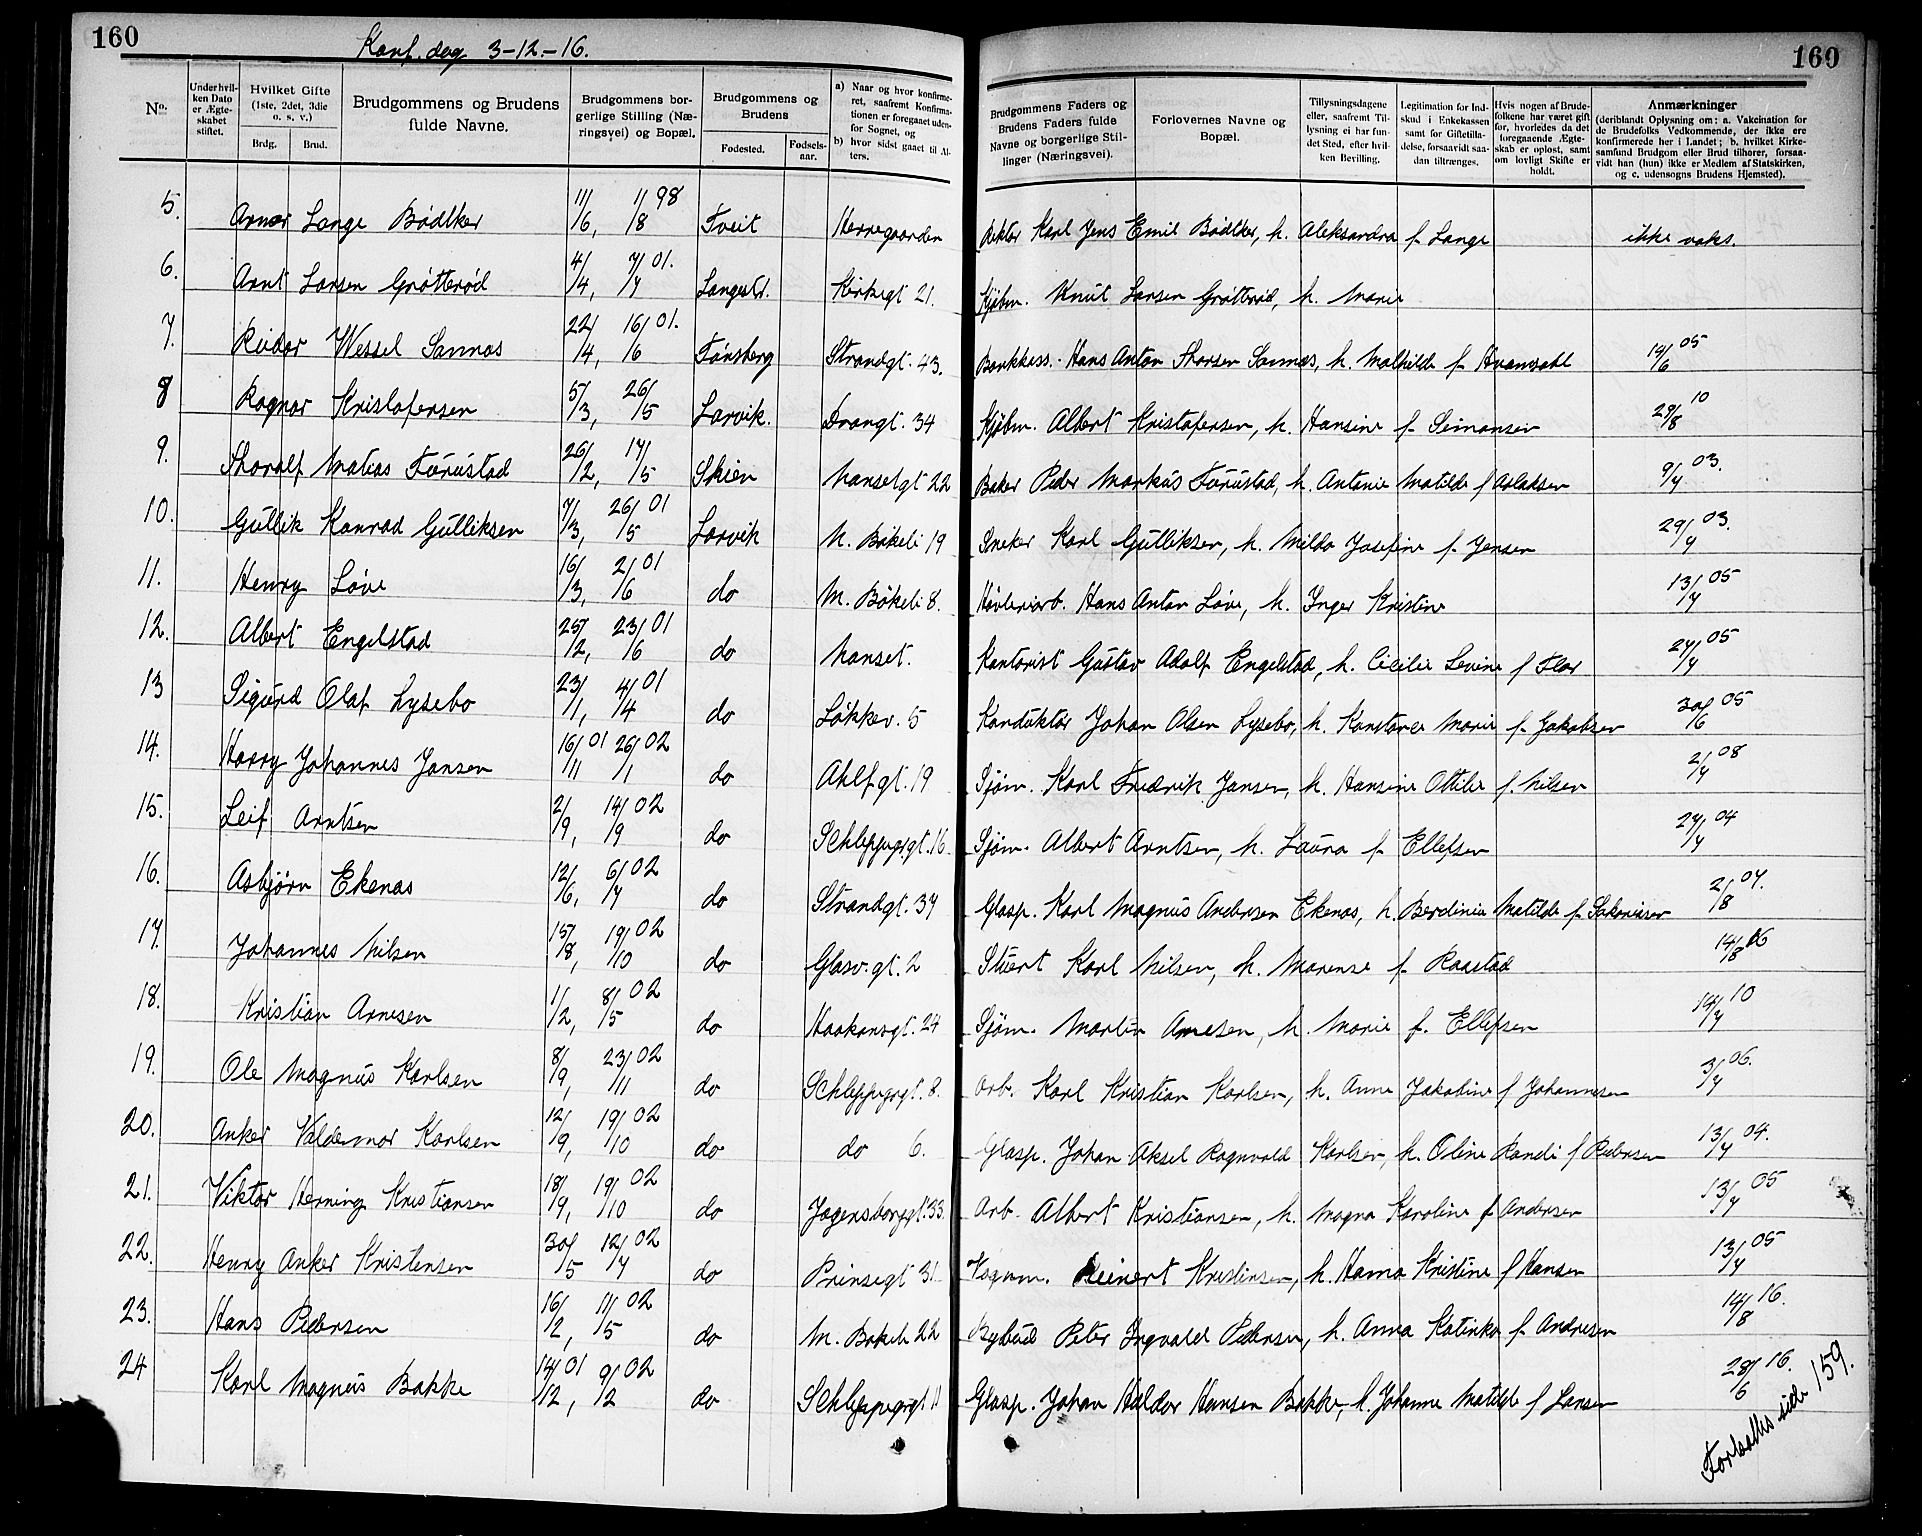 160
Konf. dag 3-12-16.
160
No.
Under hvilken Dato er Ægteskabet stiftet.
Hvilket Gifte (1ste, 2det, 3die o. s. v.)
Brdg. Brud.
Brudgommens og Brudens fulde Navne.
Brudgommens borgerlige Stilling (Næringsvei) og Bopæl.
Brudgommens og Brudens
Fødested. Fødselsaar.
a) Naar og hvor konfirmeret, saafremt Konfirmationen er foregaaet udenfor Sognet, og b) hvor sidst gaaet til Alters.
Brudgommens Faders og Brudens Faders fulde Navne og borgerlige Stillinger (Næringsvei).
Forlovernes Navne og Bopæl.
Tillysningsdagene eller, saafremt Tillysning ei har fundet Sted, efter hvilken Bevilling.
Legitimation for Indskud i Enkekassen samt for Giftetilladelse, forsaavidt saadan tiltrænges.
Hvis nogen af Brudefolkene har været gift før, hvorledes da det foregaaende Ægteskab er opløst, samt om lovligt Skifte er holdt.
Anmærkninger (deriblandt Oplysning om: a. Vakcination for de Brudefolks Vedkommende, der ikke ere konfirmerede her i Landet; b. hvilket Kirkesamfund Brudgom eller Brud tilhører, forsaavidt han (hun) ikke er Medlem af Statskirken, og c. udensogns Brudens Hjemsted).
5. Arner Lange Bödtker 11/6, 1/8 98 Tveit Herregaarden Rektor Karl Jens Emil Bödtker, h. Aleksandra f. Lange ikke vaks.
6. Arnt Larsen Grötteröd 4/4, 7/7 01. Langestr. Kirkegt 21. Kjöbm. Knut Larsen Grötteröd, h. Marie
7. Reidar Wessel Sannæs 22/4, 16/6 01. Tönsberg Strandgt. 43. Bankkass. Hans Anton Thorsen Sannæs, h. Mathilde f. Hvamdahl 14/6 05
8 Ragnar Kristofersen 5/3, 26/5 Larvik. Drangt. 34 Kjöbm. Albert Kristofersen, h. Hansine f. Simonsen 29/8 10
9. Thoralf Matias Furustad 26/2, 17/5 Skien Nansetgt 22 Baker Peder Markus Furustad, h. Antonie Matilde f Aslaksen 9/7 03.
10. Gullik Konrad Gulliksen 7/3, 26/5 01 Larvik N. Bökeli 19 Sneker Karl Gulliksen, h. Milda Josefine f. Jensen 29/7 03.
11. Henry Löve 16/3, 2/6 01 do M. Bökeli 8. Hövleriarb. Hans Anton Löve, h. Inger Kristine 13/7 05
12. Albert Engelstad 25/12, 23/6 01 do Nanset. Kontorist Gustav Adolf Engelstad, h. Cicilie Levine f Flor 27/7 05
13 Sigurd Olaf Lysebo 23/1, 4/4 01 do Lökkev. 5 Konduktör Johan Olsen Lysebo, h. Konstance Marie f. Jakobsen 30/6 05
14. Harry Johannes Jansen 16/11 01 26/1 02 do Ahlf.gt. 19 Sjöm. Karl Fredrik Jansen, h. Hansine Ottilie f. Nilsen 2/7 08
15. Leif Arntsen 2/9, 14/9 02 do Schleppegrgt. 16 Sjöm. Albert Arntsen, h. Laura f. Ellefsen 27/7 04
16. Asbjörn Ekenas 12/6, 6/7 02 do Strandgt. 37 Glasp. Karl Magnus Andersen Ekenas, h. Berdinia Matilde f. Sakariasen 2/8 07.
17. Johannes Nilsen 15/8, 19/10 02 do Glasv.gt. 2 Stuert Karl Nilsen, h. Marense f. Raastad 14/8 06
18. Kristian Arnesen 1/2, 8/5 02 do Haakonsgt. 24 Sjöm. Martin Arnesen, h. Marie f. Ellefsen 14/7 10
19. Ole Magnus Karlsen 8/9, 23/11 02 do Schleppegrgt. 8. Arb. Karl Kristian Karlsen, h. Anne Jakobine f Johannesen 3/7 06.
20. Anker Valdemar Karlsen 12/9, 19/10 02 do do 6. Glasp. Johan Aksel Ragnvald Karlsen, h. Oline Randi f Pedersen 13/7 04.
21. Viktor Henning Kristiansen 18/9, 19/10 02 do Jegersborggt. 33. Arb. Albert Kristiansen, h. Magna Karoline f Andersen 13/7 05
22. Henry Anker Kristensen 30/5 12/7 02 do Prinsegt 31 Vognm. Reinert Kristensen, h. Hanna Kristine f Hansen 13/7 05
23. Hans Pedersen 16/2, 11/5 02 do M. Bökeli 22 Bybud Peter Ingvald Pedersen, h. Anna Katinka f. Andresen 14/8 16.
24 Karl Magnus Bakke 14/12 01, 9/2 02 do Schleppegrgt 11 Glasp. Johan Haldor Hansen Bakke, h. Johanne Matilde f Larsen 28/6 16.
Fortsættes side 159.